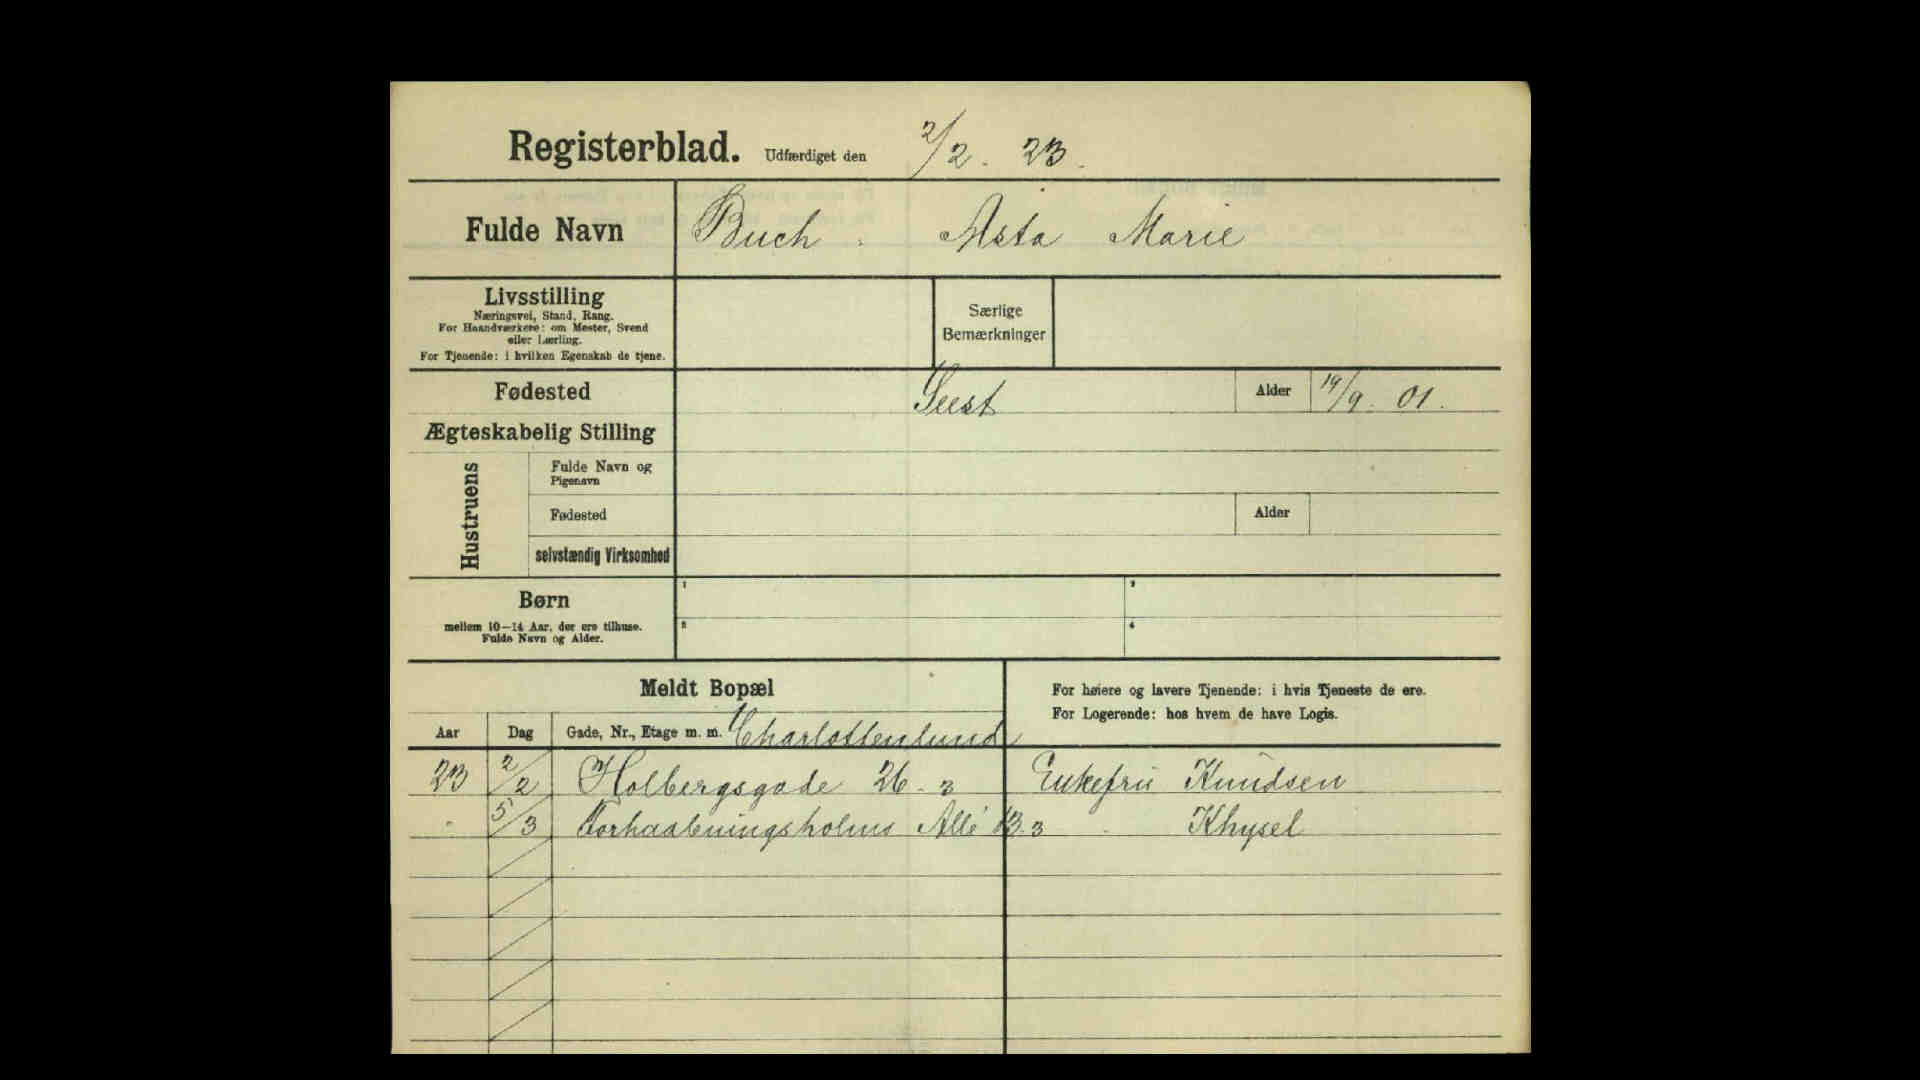 Registerblad. Udfærdiget den 2/2. 23.
Fulde Navn Buch. Asta Marie
Livsstilling
Næringsvei, Stand, Rang.
For Haandværkere: om Mester, Svend
eller Lærling.
For Tjenende: i hvilken Egenskab de tjene.
Særlige
Bemærkninger
Fødested Seest Alder 19/9. 01.
Ægteskabelig Stilling
Hustruens
Fulde Navn og
Pigenavn
Fødested Alder
selvstændig Virksomhed
Børn
mellem 10—14 Aar, der ere tilhuse.
Fulde Navn og Alder.
1 3
2 4
Meldt Bopæl
For høiere og lavere Tjenende: i hvis Tjeneste de ere.
For Logerende: hos hvem de have Logis.
Aar Dag Gade, Nr., Etage m. m. Charlottenlund
23 2/2 Holbergsgade 26. 3 Enkefru Knudsen
" 5/3 Forhaabningsholms Allé 13. 3 " Khysel